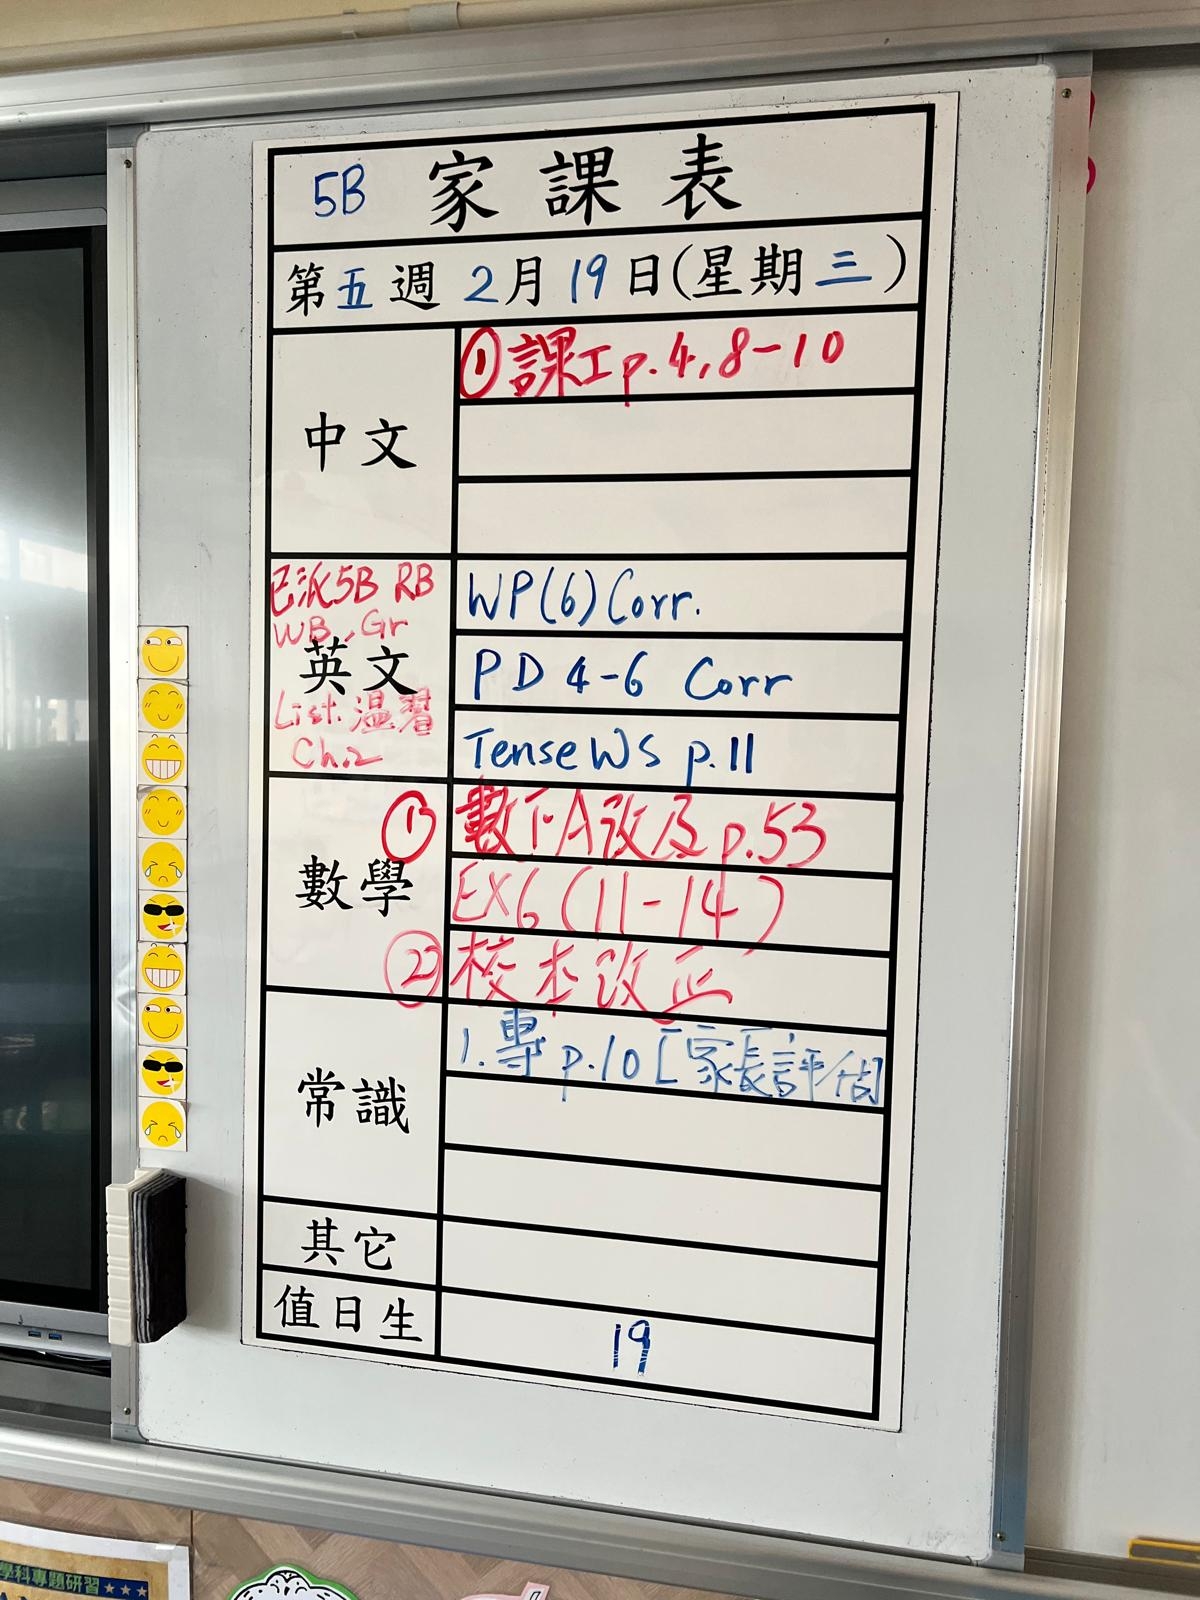 5B 家課表
第五週 2月19日(星期三)
中文
① 課工 p.4,8-10
已派5B RB
WB, Gr
英文
List. 温習
Ch.2
WP(6) Corr.
PD 4-6 Corr
Tense WS p.11
數學
① 數下A改及p.53
EX6 (11-14)
② 校本改正
常識
1. 專 p.10 [家長評估]
其它
值日生
19
學科專題研習